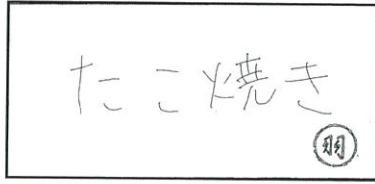 たこ焼き
羽